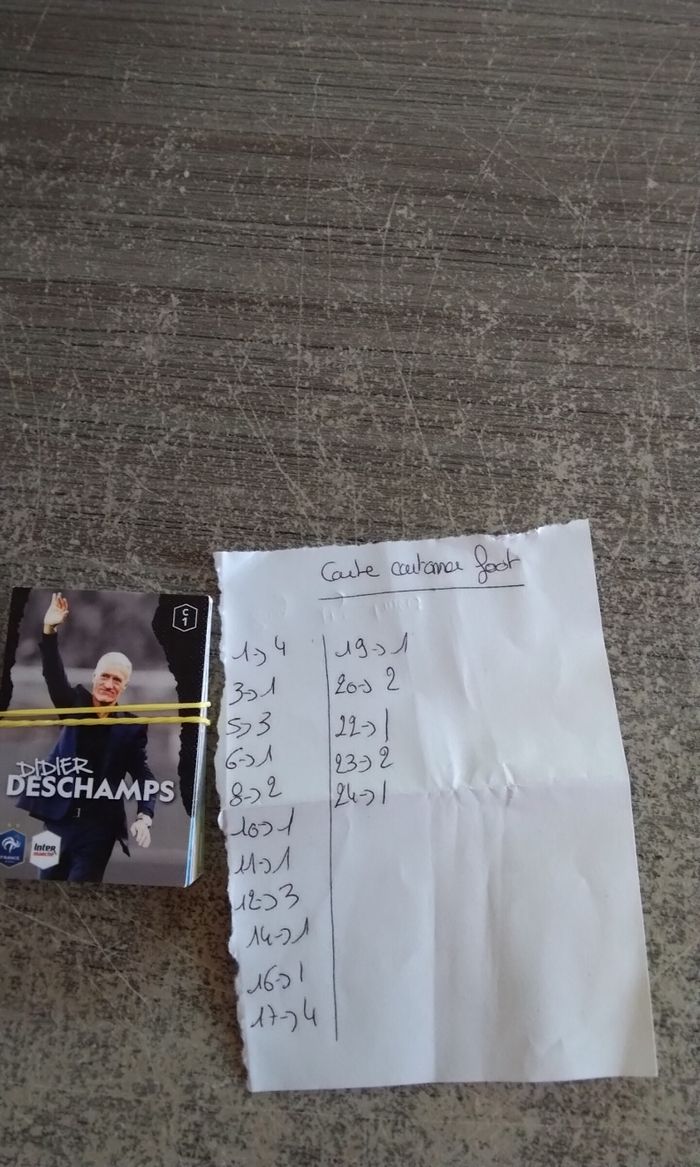 C
1
DIDIER
DESCHAMPS
FRANCE
Inter
marché
Carte cartonner foot
1->4
3->1
5->3
6->1
8->2
10->1
11->1
12->3
14->1
16->1
17->4
19->1
20->2
22->1
23->2
24->1